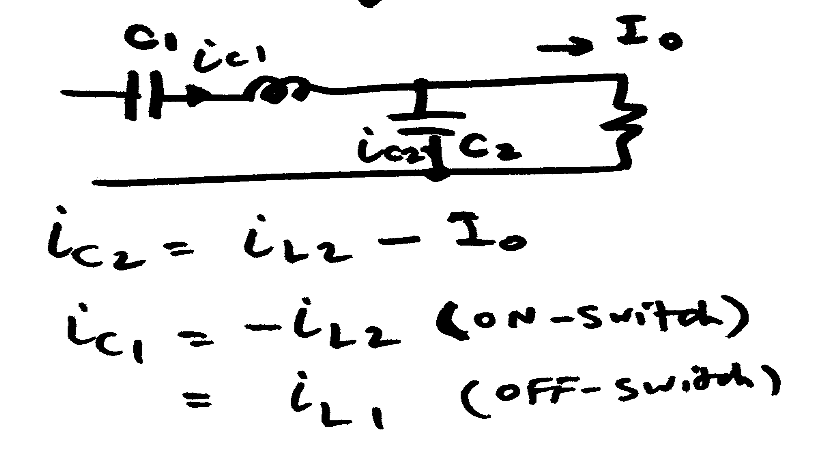 C1 ic1 → Io
ic2 C2
iC2 = iL2 - Io
iC1 = -iL2 (ON-Switch)
= iL1 (OFF-Switch)